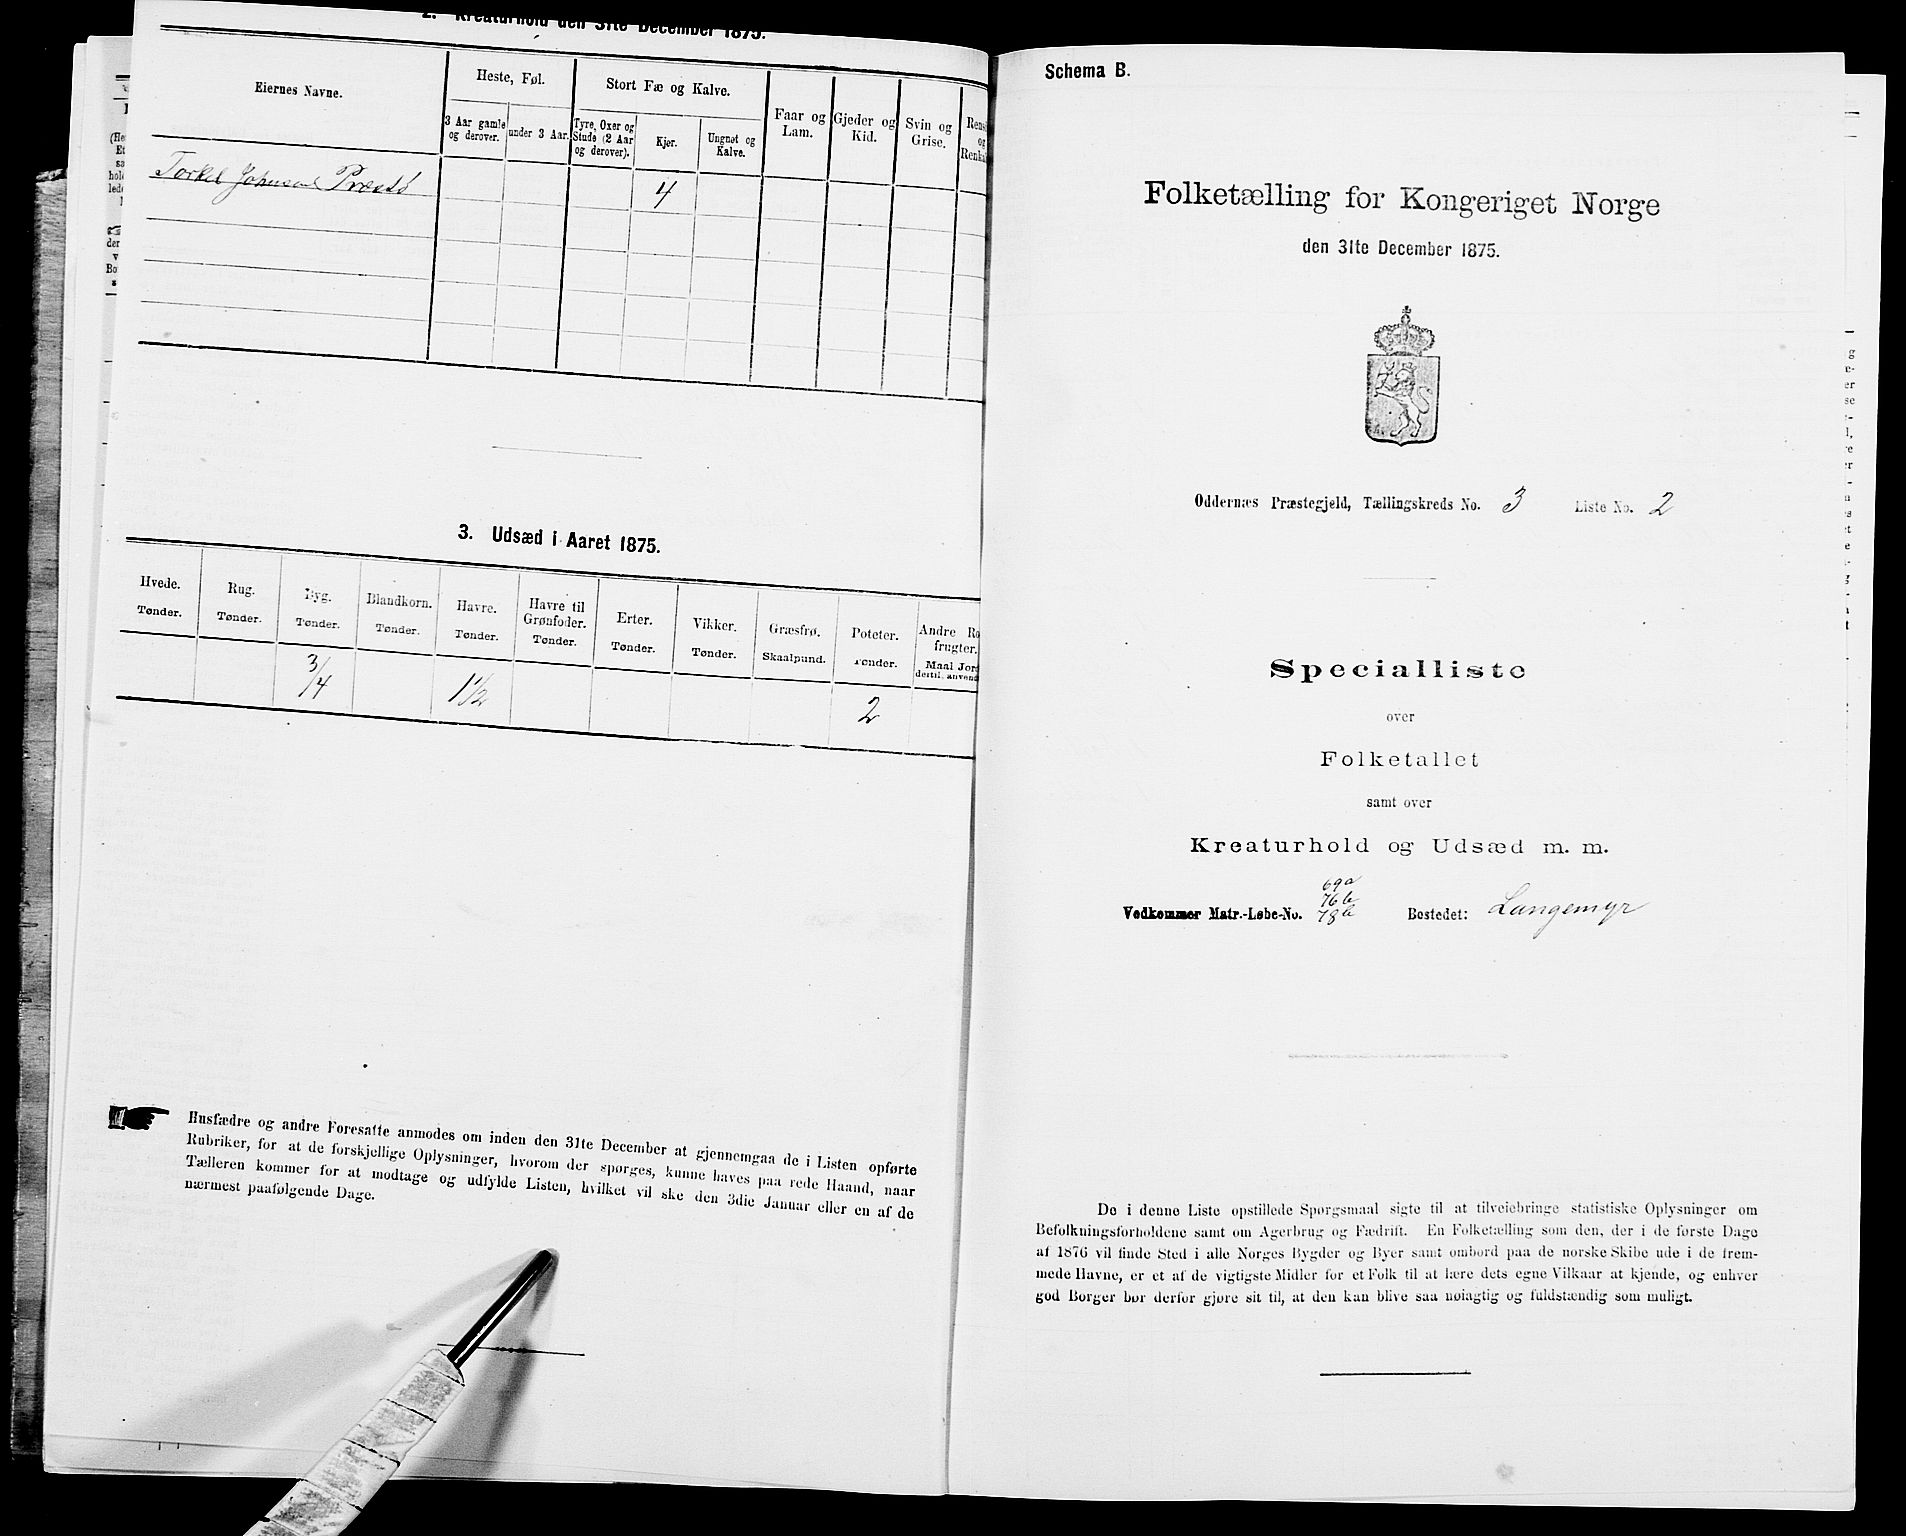 2. Kreaturhold den 31te December 1875.
Eiernes Navne.
Heste, Føl.
Stort Fæ og Kalve.
Faar og
Lam.
Gjeder og
Kid.
Svin og
Grise.
Rens
og
Renka
3 Aar gamle
og derover.
under 3 Aar.
Tyre, Oxer og
Stude (2 Aar
og derover).
Kjer.
Ungnøt og
Kalve.
Torkel Johnsen Præstø
4
3. Udsæd i Aaret 1875.
Hvede.
Tønder.
Rug.
Tønder.
Byg.
Tønder.
Blandkorn.
Tønder.
Havre.
Tønder.
Havre til
Grønfoder.
Tønder.
Erter.
Tønder.
Vikker.
Tønder.
Græsfrø.
Skaalpund.
Poteter.
Tønder.
Andre Ro
frugter.
Maal Jord
dertil anvend
3/4
1 1/2
2
Husfædre og andre Foresatte anmodes om inden den 31te December at gjennemgaa de i Listen opførte
Rubriker, for at de forskjellige Oplysninger, hvorom der spørges, kunne haves paa rede Haand, naar
Tælleren kommer for at modtage og udfylde Listen, hvilket vil ske den 3die Januar eller en af de
nærmest paafølgende Dage.
Schema B.
Folketælling for Kongeriget Norge
den 31te December 1875.
Oddernæs Præstegjeld, Tællingskreds No. 3 Liste No. 2
Specialliste
over
Folketallet
samt over
Kreaturhold og Udsæd m. m.
69a
76b
Vedkommer Matr.-Løbe-No. 78b Bostedet: Langemyr
De i denne Liste opstillede Spørgsmaal sigte til at tilveiebringe statistiske Oplysninger om
Befolkningsforholdene samt om Agerbrug og Fædrift. En Folketælling som den, der i de første Dage
af 1876 vil finde Sted i alle Norges Bygder og Byer samt ombord paa de norske Skibe ude i de frem-
mede Havne, er et af de vigtigste Midler for et Folk til at lære dets egne Vilkaar at kjende, og enhver
god Borger bør derfor gjøre sit til, at den kan blive saa nøiagtig og fuldstændig som muligt.